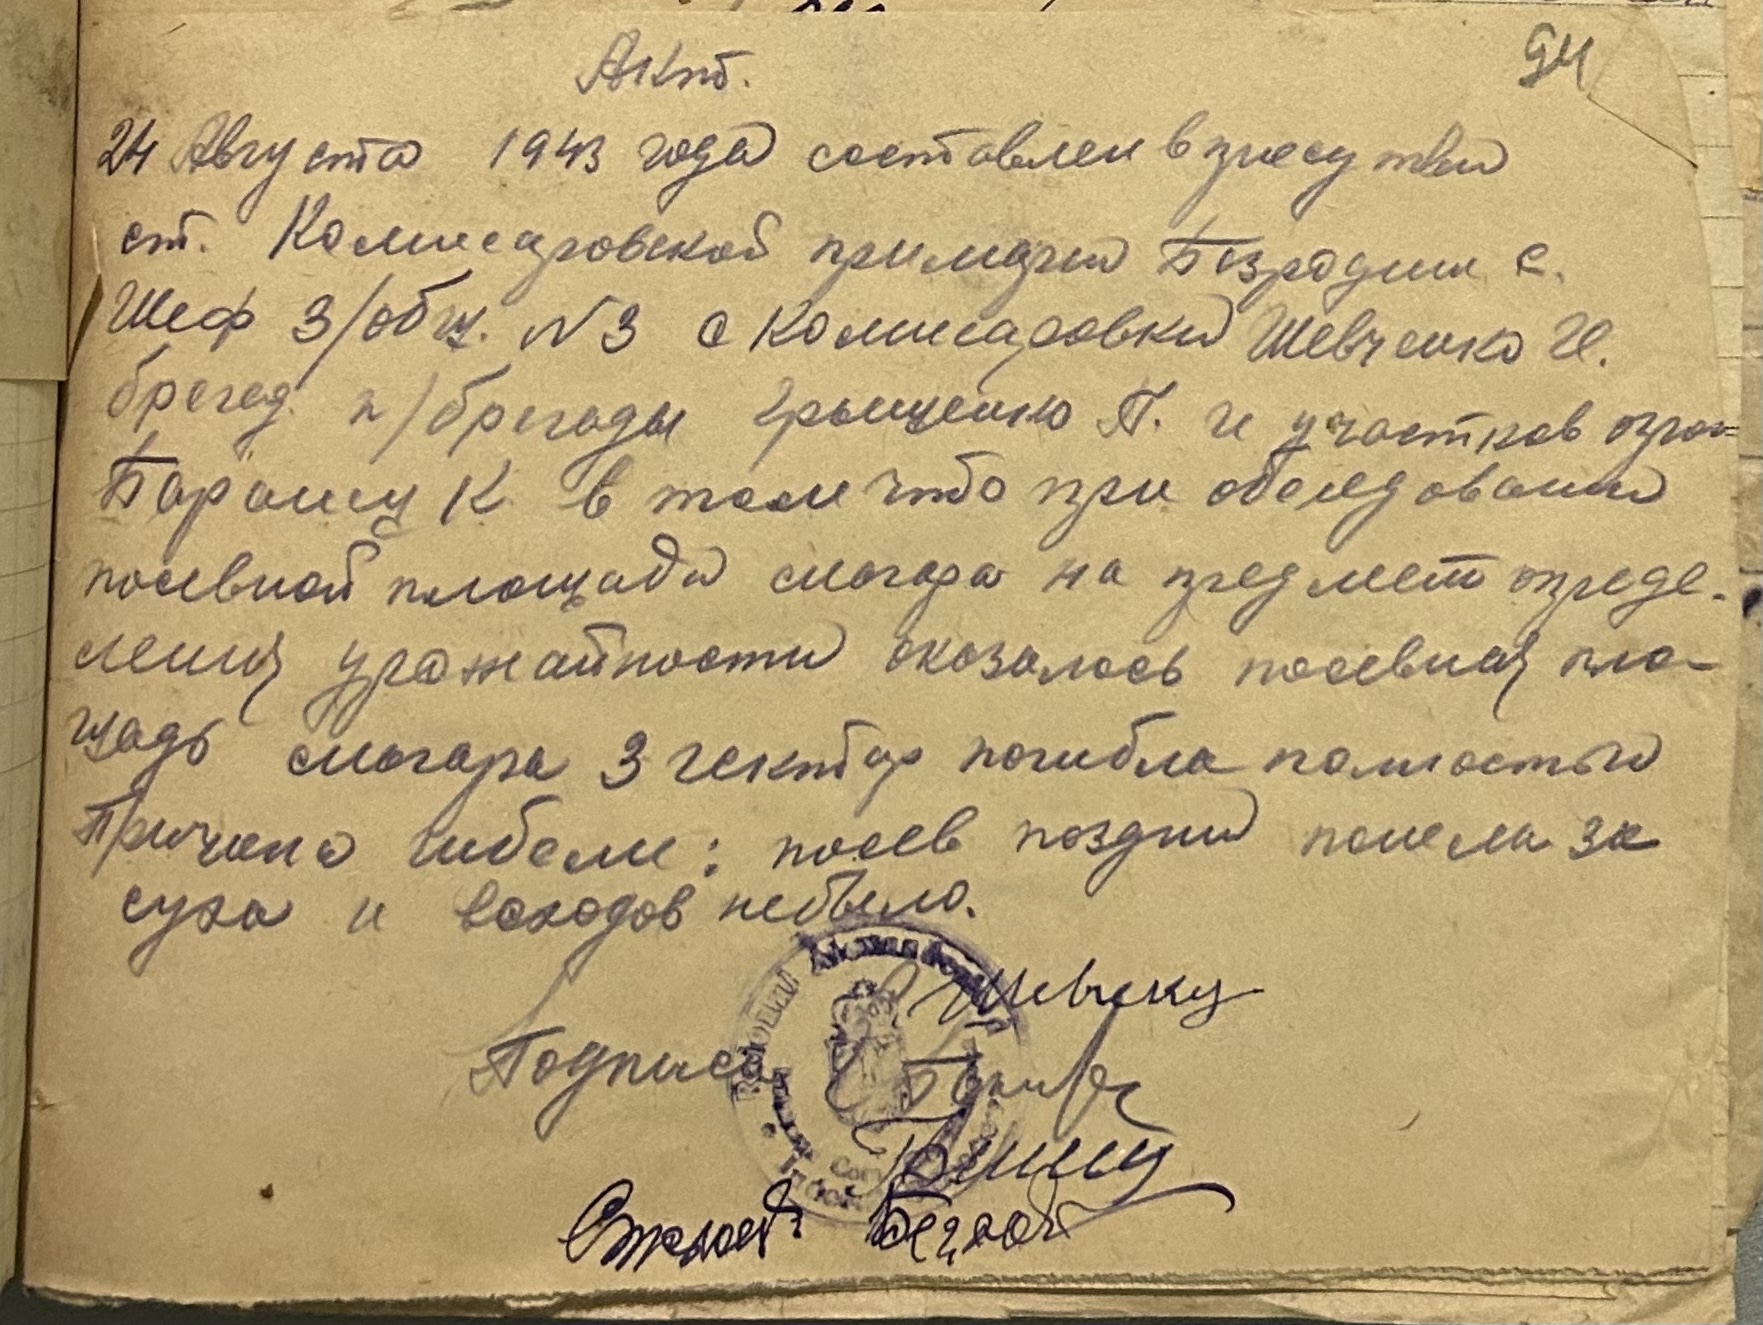 94
Акт.
24 Августа 1943 года составлен в присутствии
ст. Комисаровской примарии Безродни С.
Шеф З/общ. №3 с Комисаровки Шевченко И.
бригад. п/бригады Грыщенко П. и участков агро=
Баранец К. в том что при обследовании
посевной площади могара на предмет опреде-
ления урожайности оказалось посевная пло-
щадь могара 3 гектар погибла полностью
Причина гибели: посев поздний попела за
суха и всходов небыло.
Подписи